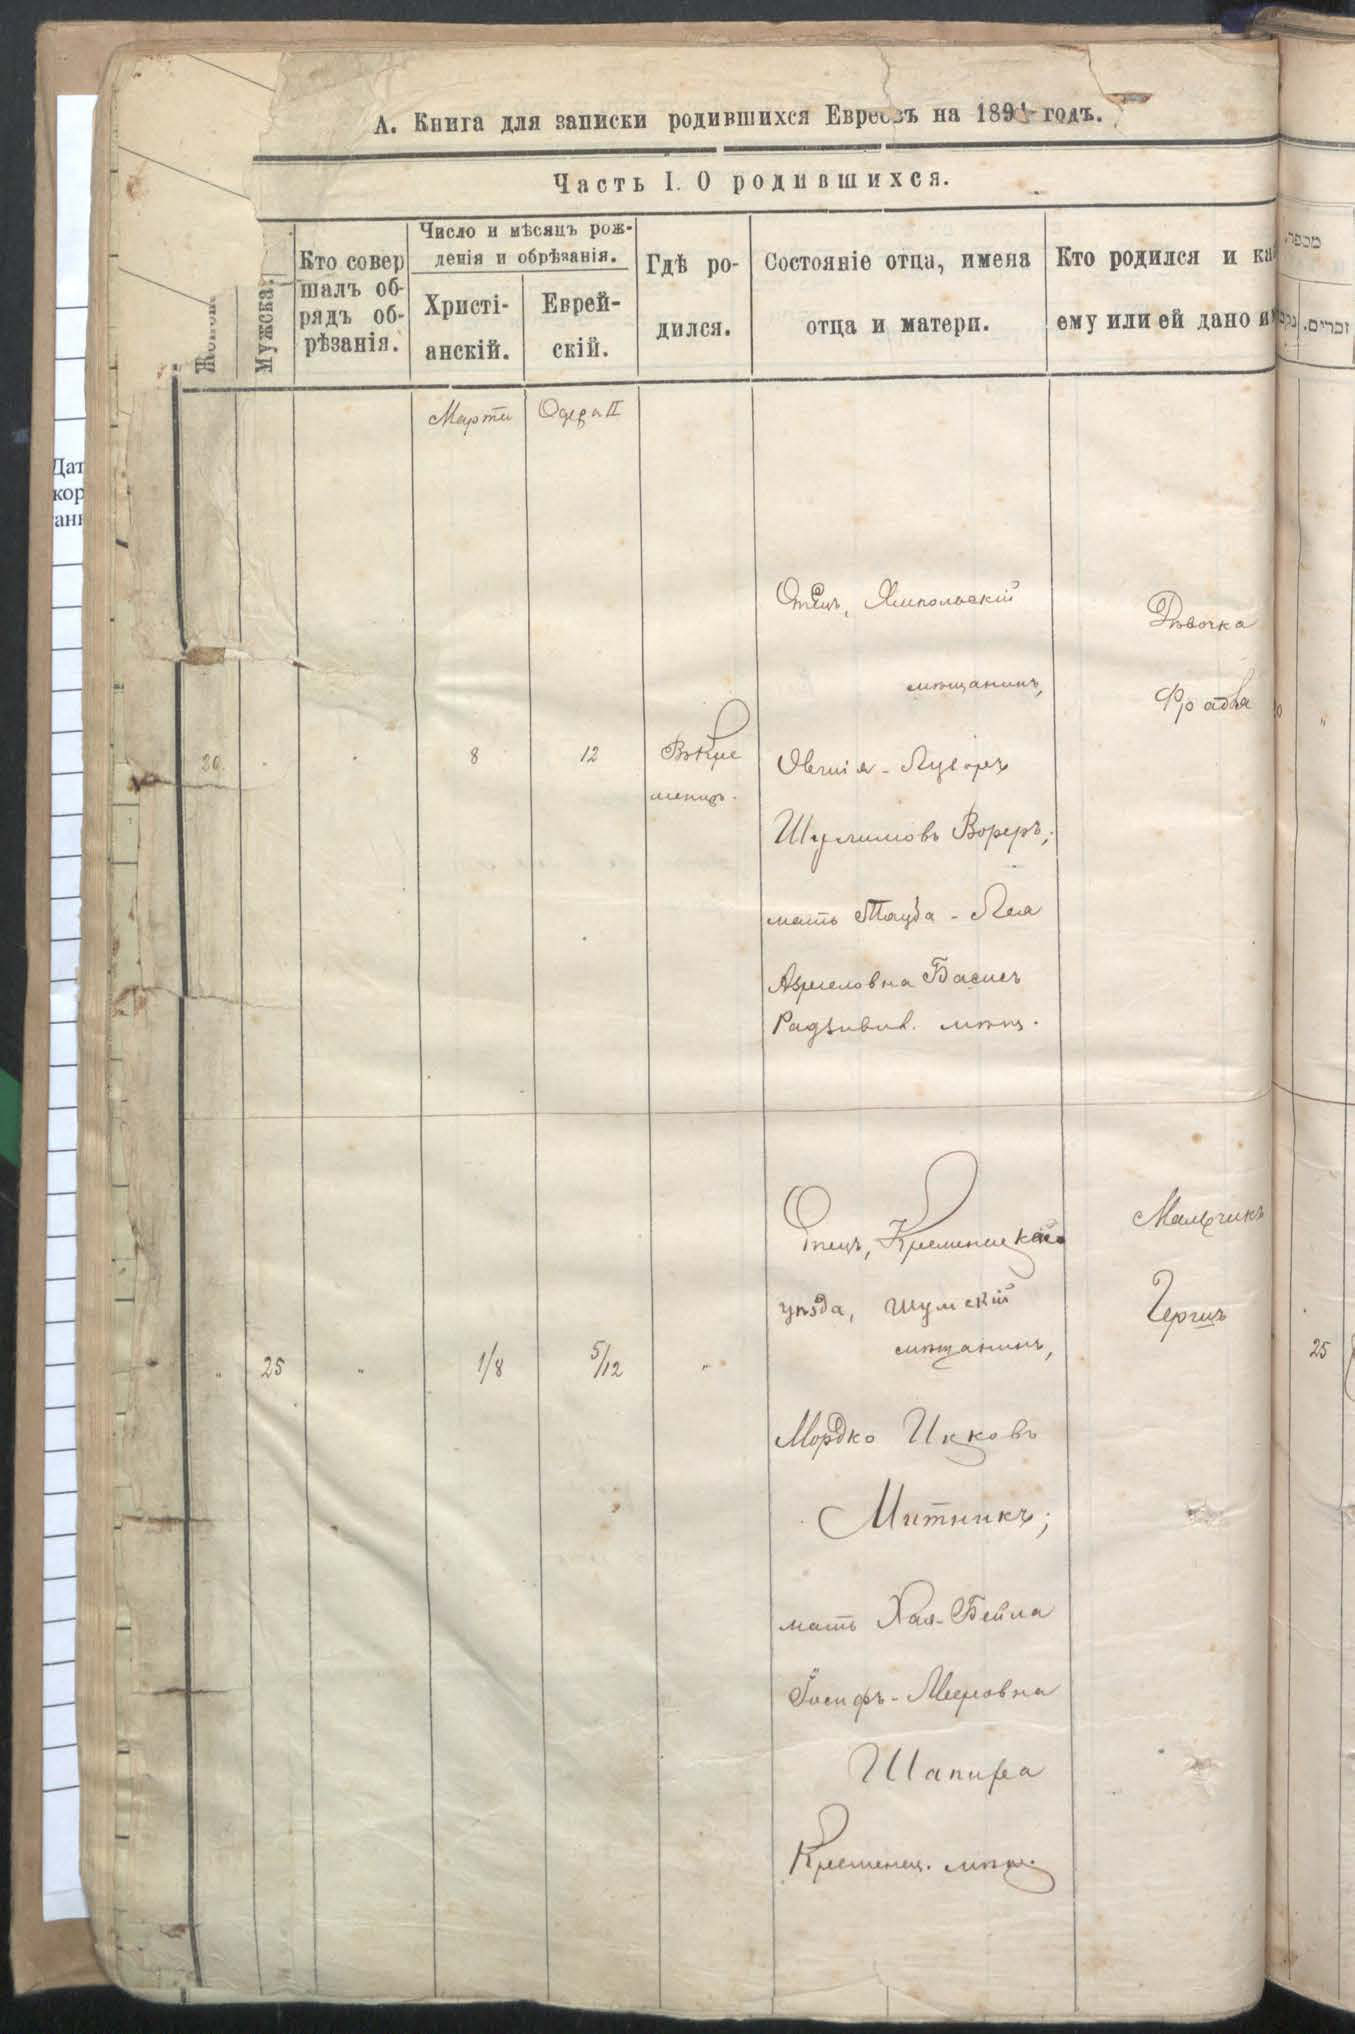 А. Книга для записки родившихся Евреевъ на 1891 годъ.
Часть I. О родившихся.
Мужска
Кто совер
шалъ об-
рядъ об-
рѣзанія.
Число и мѣсяцъ рож-
денія и обрѣзанія.
Христі-
анскій.
Еврей-
скій.
Гдѣ ро-
дился.
Состояніе отца, имена
отца и матери.
Кто родился и ка
ему или ей дано и
Марта
Одера II
20
"
"
8
12
Въ Кре
менцѣ.
Отецъ, Ямпольскій
мѣщанинъ,
Овшія - Лузоръ
Шулимовъ Вореръ;
мать Тауба - Лея
Азриеловна Басисъ
Радзивил. мѣщ.
Дѣвочка
Фрадля
"
25
"
1/8
5/12
"
Отецъ, Кременецкаго
уѣзда, Шумскій
мѣщанинъ,
Мордко Ицковъ
Митникъ;
мать Хая-Бейла
Іосифъ-Мееровна
Шапира
Кременец. мѣщ.
Мальчикъ
Гершъ
Дат
кор
ані
מספר
זכרים.
"
25